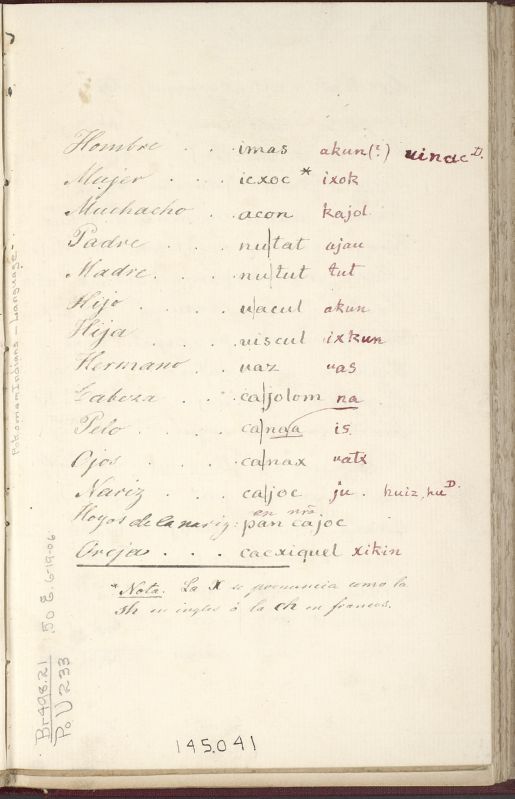 Hombre . . imas akun(?) uinac D.
Mujer . . . icxoc * ixok
Muchacho . acon kajol
Padre . . . nu/tat ajau
Madre. . . . nu/tut tut
Hijo . . . . u/acul akun
Hija . . . . uiscul ixkun
Hermano . . uaz uas
Cabeza . . . ca/jolom na
Pelo . . . . ca/naa is
Ojos . . . . ca/nax uatx
Nariz . . . . ca/joc ju . huiz, hu D.
en nrô
Hoyos de la nariz: pan cajoc
Oreja . . . cacxiquel xikin
* Nota. La X se pronuncia como la
sh en ingles ó la ch en frances.
Pokomam Indians - Language -
50 E. 6-19-06
Br498.21
PoU233
145041